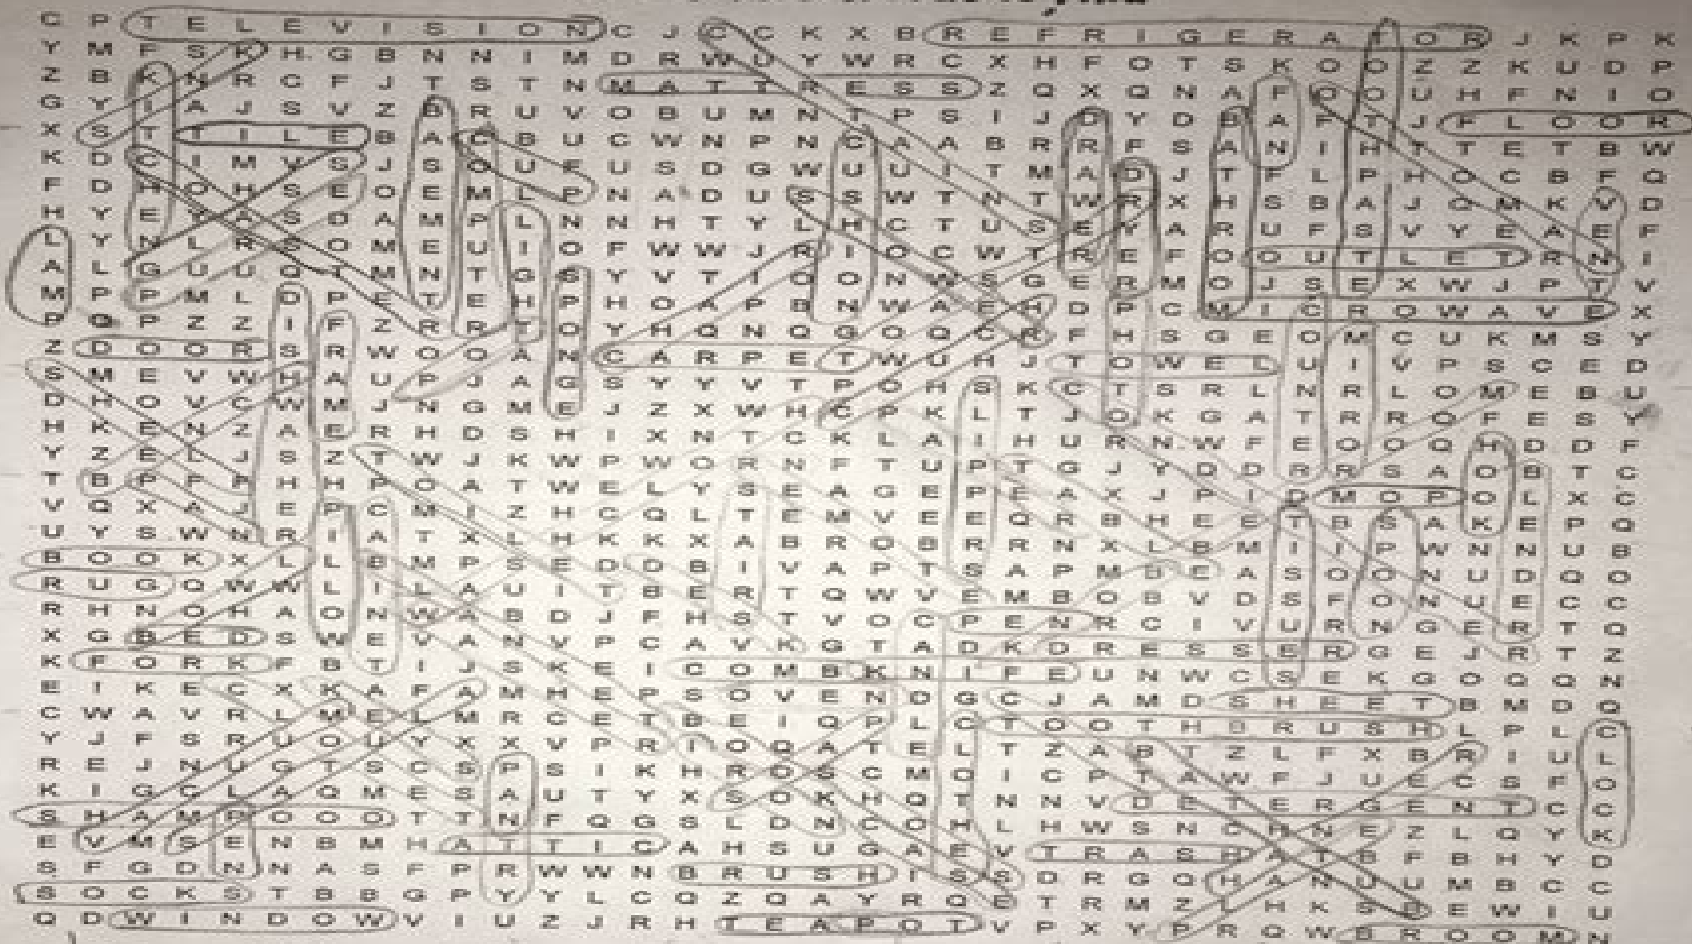 C P T E L E V I S I O N C J C C K X B R E F R I G E R A T O R J K P K
Y M F S K H G B N N I M D R W U Y W R C X H F O T S K O O Z Z K U D P
Z B K N R C F J T S T N M A T T R E S S Z Q X Q N A F O O U H F N I O
G Y I A J S V Z B R U V O B U M N T P S I J D Y D B A P T J F L O O R
X S T T I L E B A C B U C W N P N C A A B R R F S A N I H T T E T B W
K D C I M V S J S O U F U S D G W U U I T M A D J T F L P H O C B F Q
F D H O H S E O E M L P N A D U S S W T N T W R X H S B A J O M K V D
H Y E Y A S D A M P L N N H T Y L H C T U S E Y A R U F S V Y E A E F
L Y N L R S O M E U I O F W W J R I O C W T R E F O O U T L E T R N I
A L G U U O T M N T G S Y V T I O O N W S G E R M O J S E X W J P T V
M P P M L D P E T E H P H O A P B N W A E H D P C M I C R O W A V E X
P Q P Z Z I F Z R R T O Y H Q N Q G O Q C R F H S G E O M C U K M S Y
Z D O O R S R W O O A N C A R P E T W U H J T O W E L U I V P S C E D
S M E V W H A U P J A G S Y Y V T P O H S K C T S R L N R L O M E B U
D H O V C W M J N G M E J Z X W H C P K L T J O K G A T R R O F E S Y
H K E N Z A E R H D S H I X N T C K L A I H U R N W F E O O Q H D D F
Y Z E L J S Z T W J K W P W O R N F T U P T G J Y D D R R S A O B T C
T B P P P H H P O A T W E L Y S E A G E P E A X J P I D M O P O L X C
V Q X A J E P C M I Z H C Q L T E M V E E Q R B H E E T B S A K E P Q
U Y S W N R I A T X L H K K X A B R O B R R N X L B M I I P W N N U B
B O O K X L L B M P S E D D B I V A P T S A P M B E A S O O N U D Q O
R U G Q W W L I L A U I T B E R T Q W V E M B O B V D S F O N U E C C
R H N O H A O N W A B D J F H S T V O C P E N R C I V U R N G E R T Q
X G B E D S W E V A N V P C A V K G T A D K D R E S S E R G E J R T Z
K F O R K F B T I J S K E I C O M B K N I F E U N W C S E K G O Q Q N
E I K E C X K A F A M H E P S O V E N D G C J A M D S H E E T B M D Q
C W A V R L M E L M R C E T B E I Q P L C T O O T H B R U S H L P L C
Y J F S R U O U Y X X V P R I O Q A T E L T Z A B T Z L F X B R I U L
R E J N U G T S C S P S I K H R O S C M O I C P T A W F J U E C S F O
K I G C L A Q M E S A U T Y X S O K H Q T N N V D E T E R G E N T C C
S H A M P O O O T T N F Q G S L D N C O H L H W S N C H N E Z L Q Y K
E V M S E N B M H A T T I C A H S U G A E V T R A S H A T B F B H Y D
S F G D N N A S F P R W W N B R U S H I S S D R G Q H A N U U M B C C
S O C K S T B B G P Y Y L C Q Z Q A Y R Q E T R M Z L H K S D E W I U
Q D W I N D O W V I U Z J R H T E A P O T V P X Y P R Q W B R O O M N